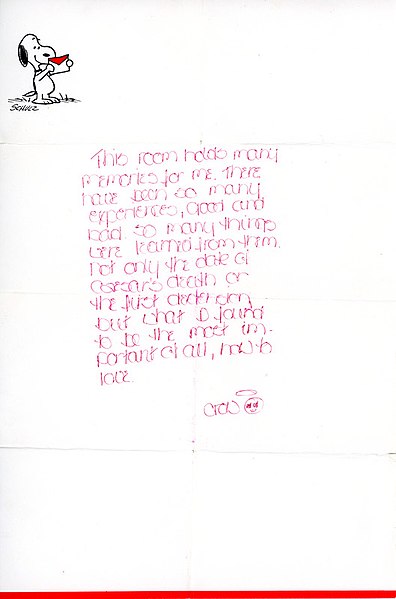 SCHULZ
This room holds many
memories for me. There
have been so many
experiences, good and
bad so many things
were learned from them.
Not only the date of
Caesar's death or
the first declension
but what I found
to be the most im-
portant of all, how to
love.